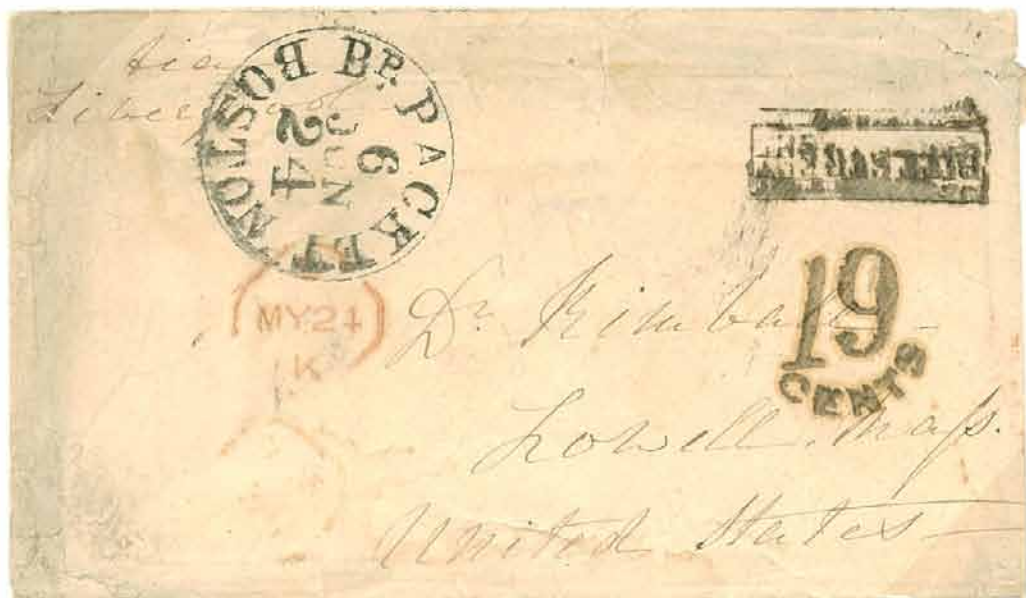 via
Liverpool
BOSTON BR. PACKET
6
JUN
24
MY 24
K
19
CENTS
Dr Kimball
Lowell, Mass.
United States